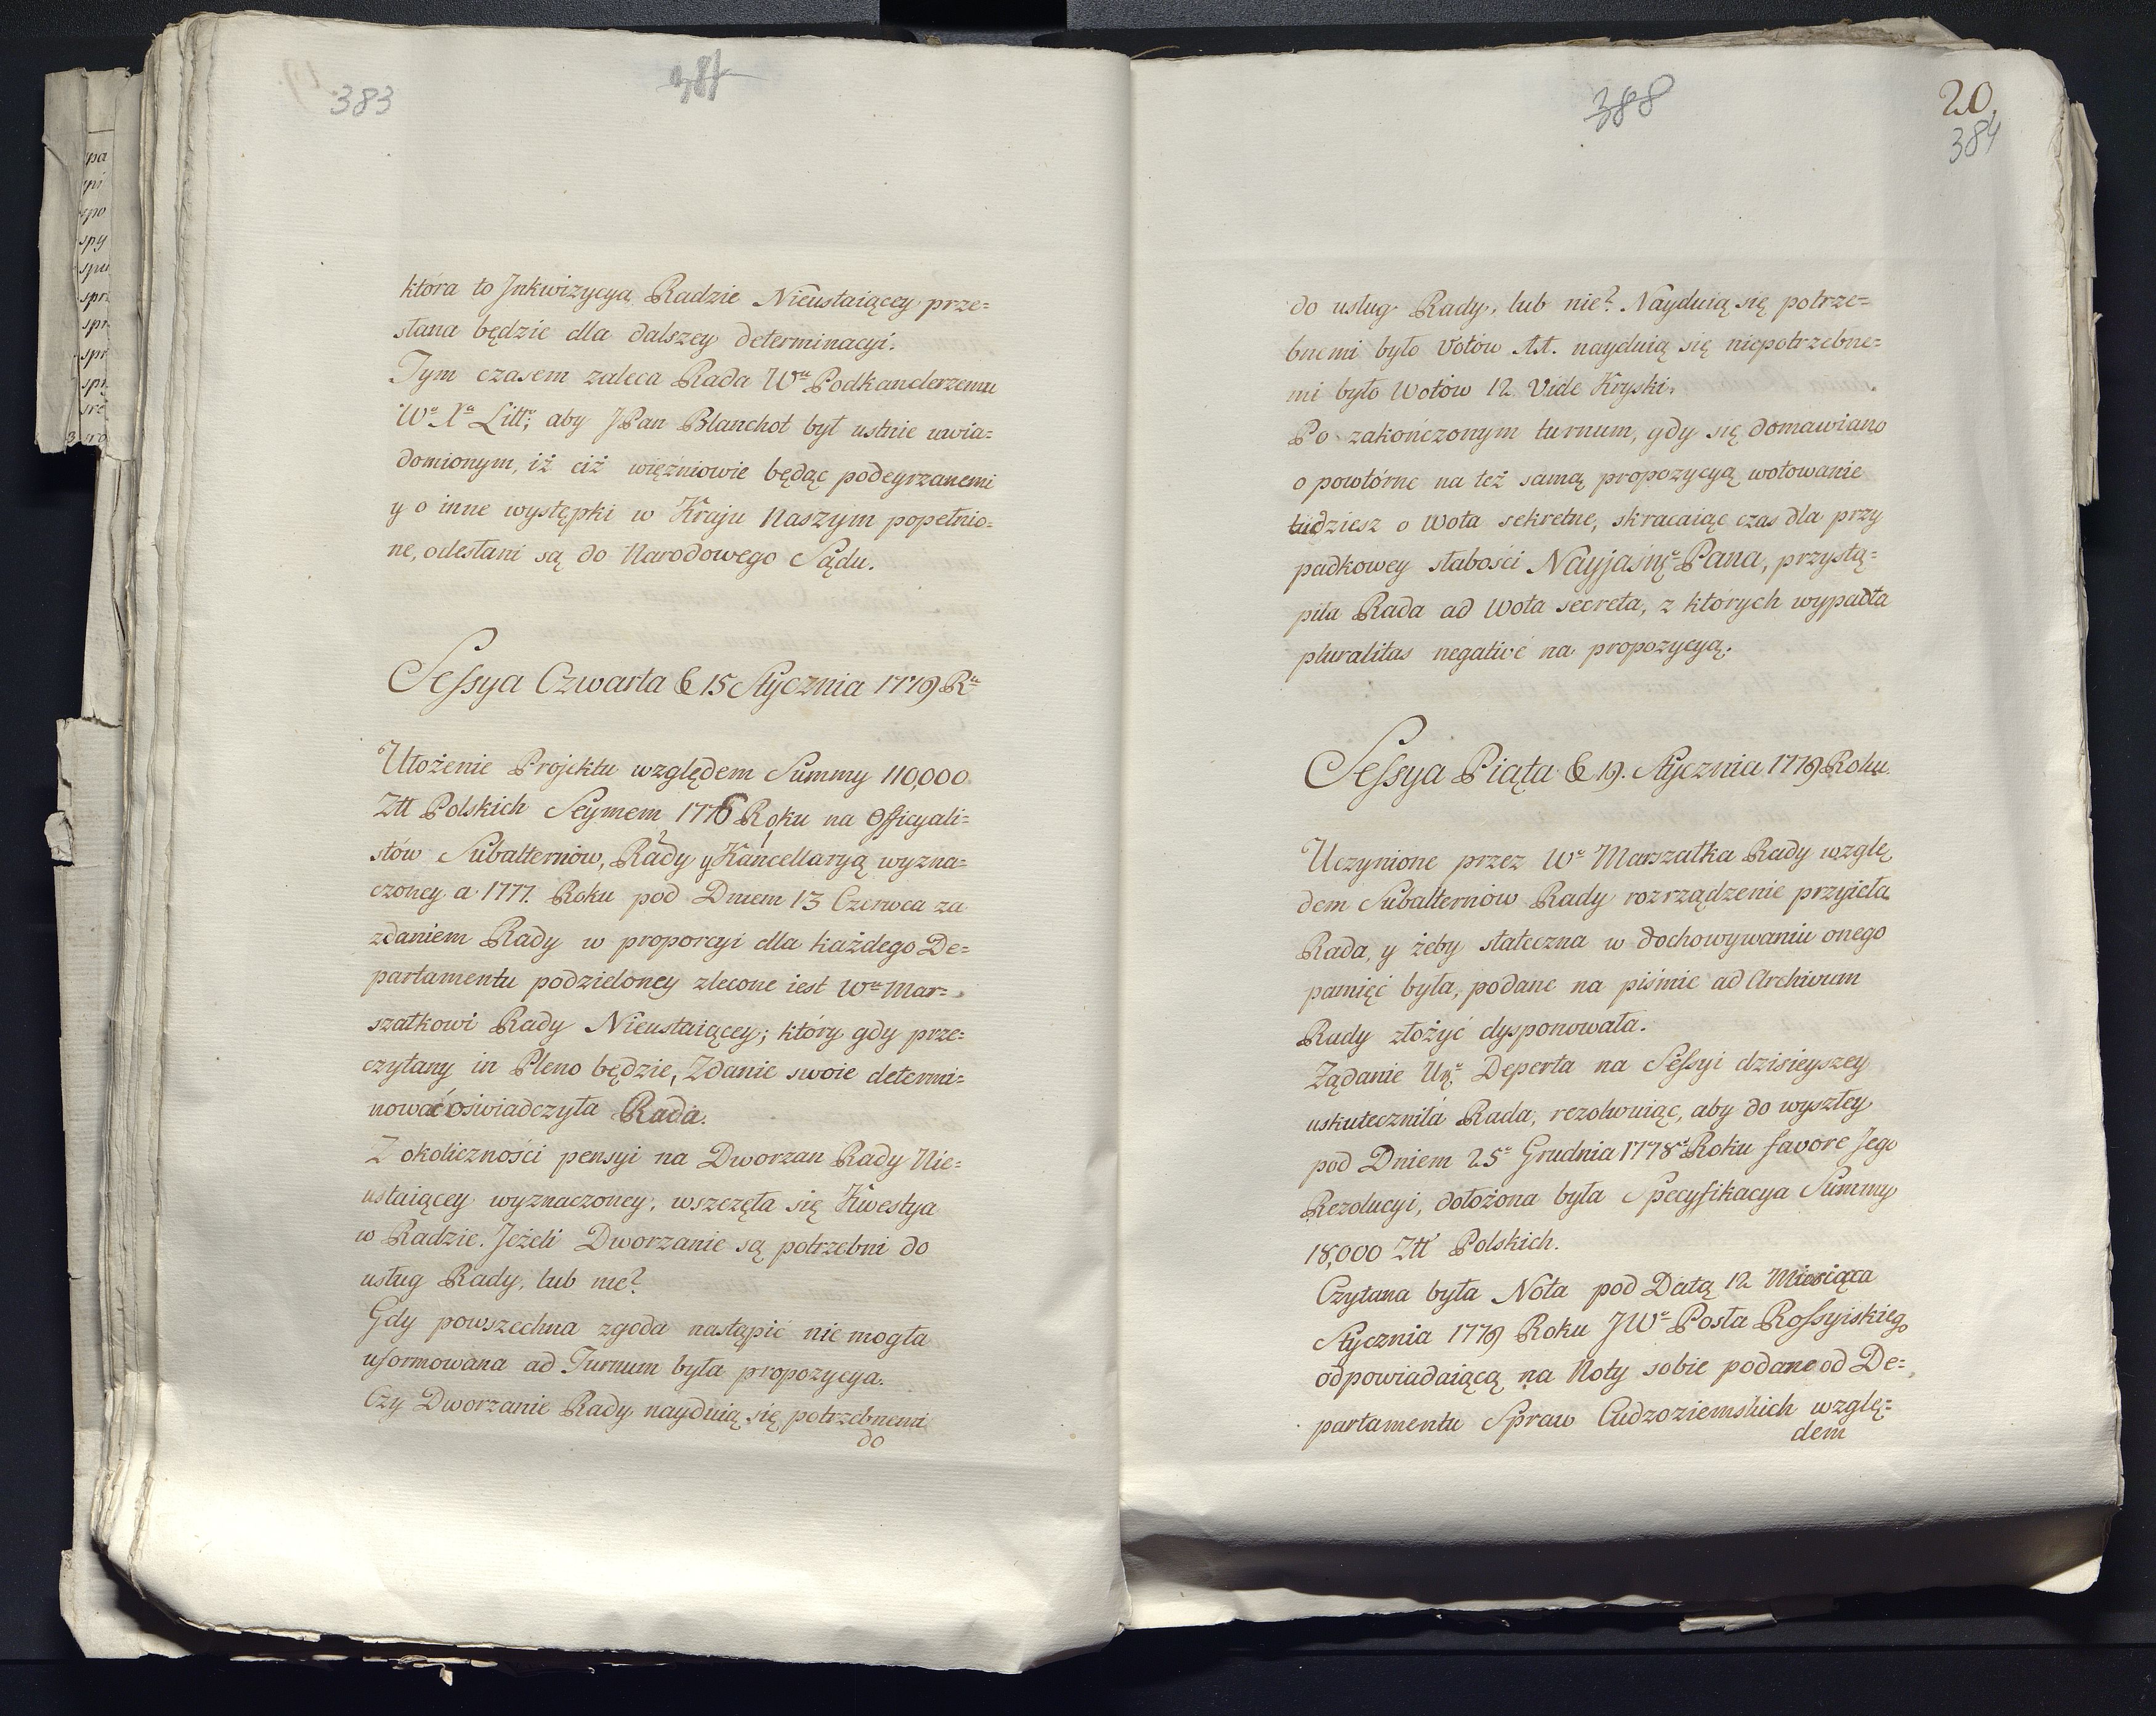 383
387
która to Inkwizycya Radzie Nieustaiącey prze=
słana będzie dla dalszey determinacyi.
Tym czasem zaleca Rada Wu Podkanclerzemu
Wo Xa Litto; aby JPan Blanchot był ustnie uwia=
domionym, iż ciż więźniowie będąc podeyrzanemi
y o inne występki w Kraju Naszym popełnio=
ne, odesłani są do Narodowego Sądu.
Sessya Czwarta D 15 Stycznia 1779 Ru
Ułożenie Projektu względem Summy 110,000
Ztt Polskich Seymem 1776 Roku na Officyali=
stów Subalternow, Rady y Kancellaryą wyzna=
czoney a 1777. Roku pod Dniem 13 Czerwca za
zdaniem Rady w proporcyi dla każdego De=
partamentu podzieloney zlecone iest Wu Mar=
szałkowi Rady Nieustaiącey; który gdy prze=
czytany in Pleno będzie, Zdanie swoie determi=
nować oświadczyła Rada.
Z okoliczności pensyi na Dworzan Rady Nie=
ustaiącey wyznaczoney, wszczęła się Kwestya
w Radzie. Jeżeli Dworzanie są potrzebni do
usług Rady, lub nie?
Gdy powszechna zgoda nastąpić nie mogła
uformowana ad Turnum była propozycya.
Czy Dworzanie Rady nayduią się potrzebnemi
do
388
20.
384
do usług Rady, lub nie? Nayduią się potrze=
bnemi było Votow 11. nayduią się niepotrzebne=
mi było Wotów 12 Vide Kryski.
Po zakończonym turnum, gdy się domawiano
o powtórne na też samą propozycyą wotowanie
tudziesz o Wota sekretne, skracaiąc czas dla przy
padkowey słabości Nayjaśnę Pana, przystą=
piła Rada ad Wota secreta, z których wypadła
pluralitas negativè na propozycyą.
Sessya Piąta D 19. Stycznia 1779 Roku
Uczynione przez Wo Marszałka Rady wzglę
dem Subalternow Rady rozrządzenie przyieła
Rada, y żeby stateczna w dochowywaniu onego
pamięć była, podane na piśmie ad Archivum
Rady złożyć dysponowała.
Żądanie Ur Deperta na Sessyi dzisieyszey
uskuteczniła Rada, rezolwuiąc, aby do wyszłey
pod Dniem 25o Grudnia 1778 Roku favore Jego
Rezolucyi, dołożona była Specyfikacya Summy
18,000 Ztt Polskich.
Czytana była Nota pod Datą 12 Miesiąca
Stycznia 1779 Roku JWo Posła Rossyiskiego
odpowiadaiącą na Noty sobie podane od De=
partamentu Spraw Cudzoziemskich wzglę=
dem